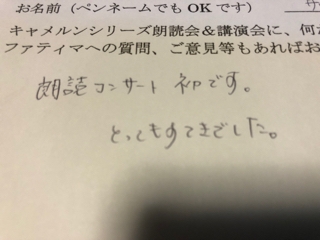 お名前(ペンネームでもOKです)
キャメルンシリーズ朗読会&講演会に、何か
ファティマへの質問、ご意見等もあればお
朗読コンサート 初です。
とってもすてきでした。